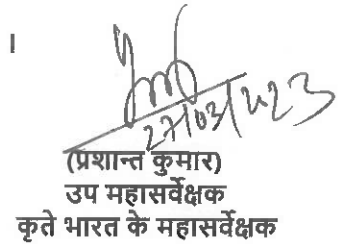 ।
27/03/2023
(प्रशान्त कुमार)
उप महासर्वेक्षक
कृते भारत के महासर्वेक्षक